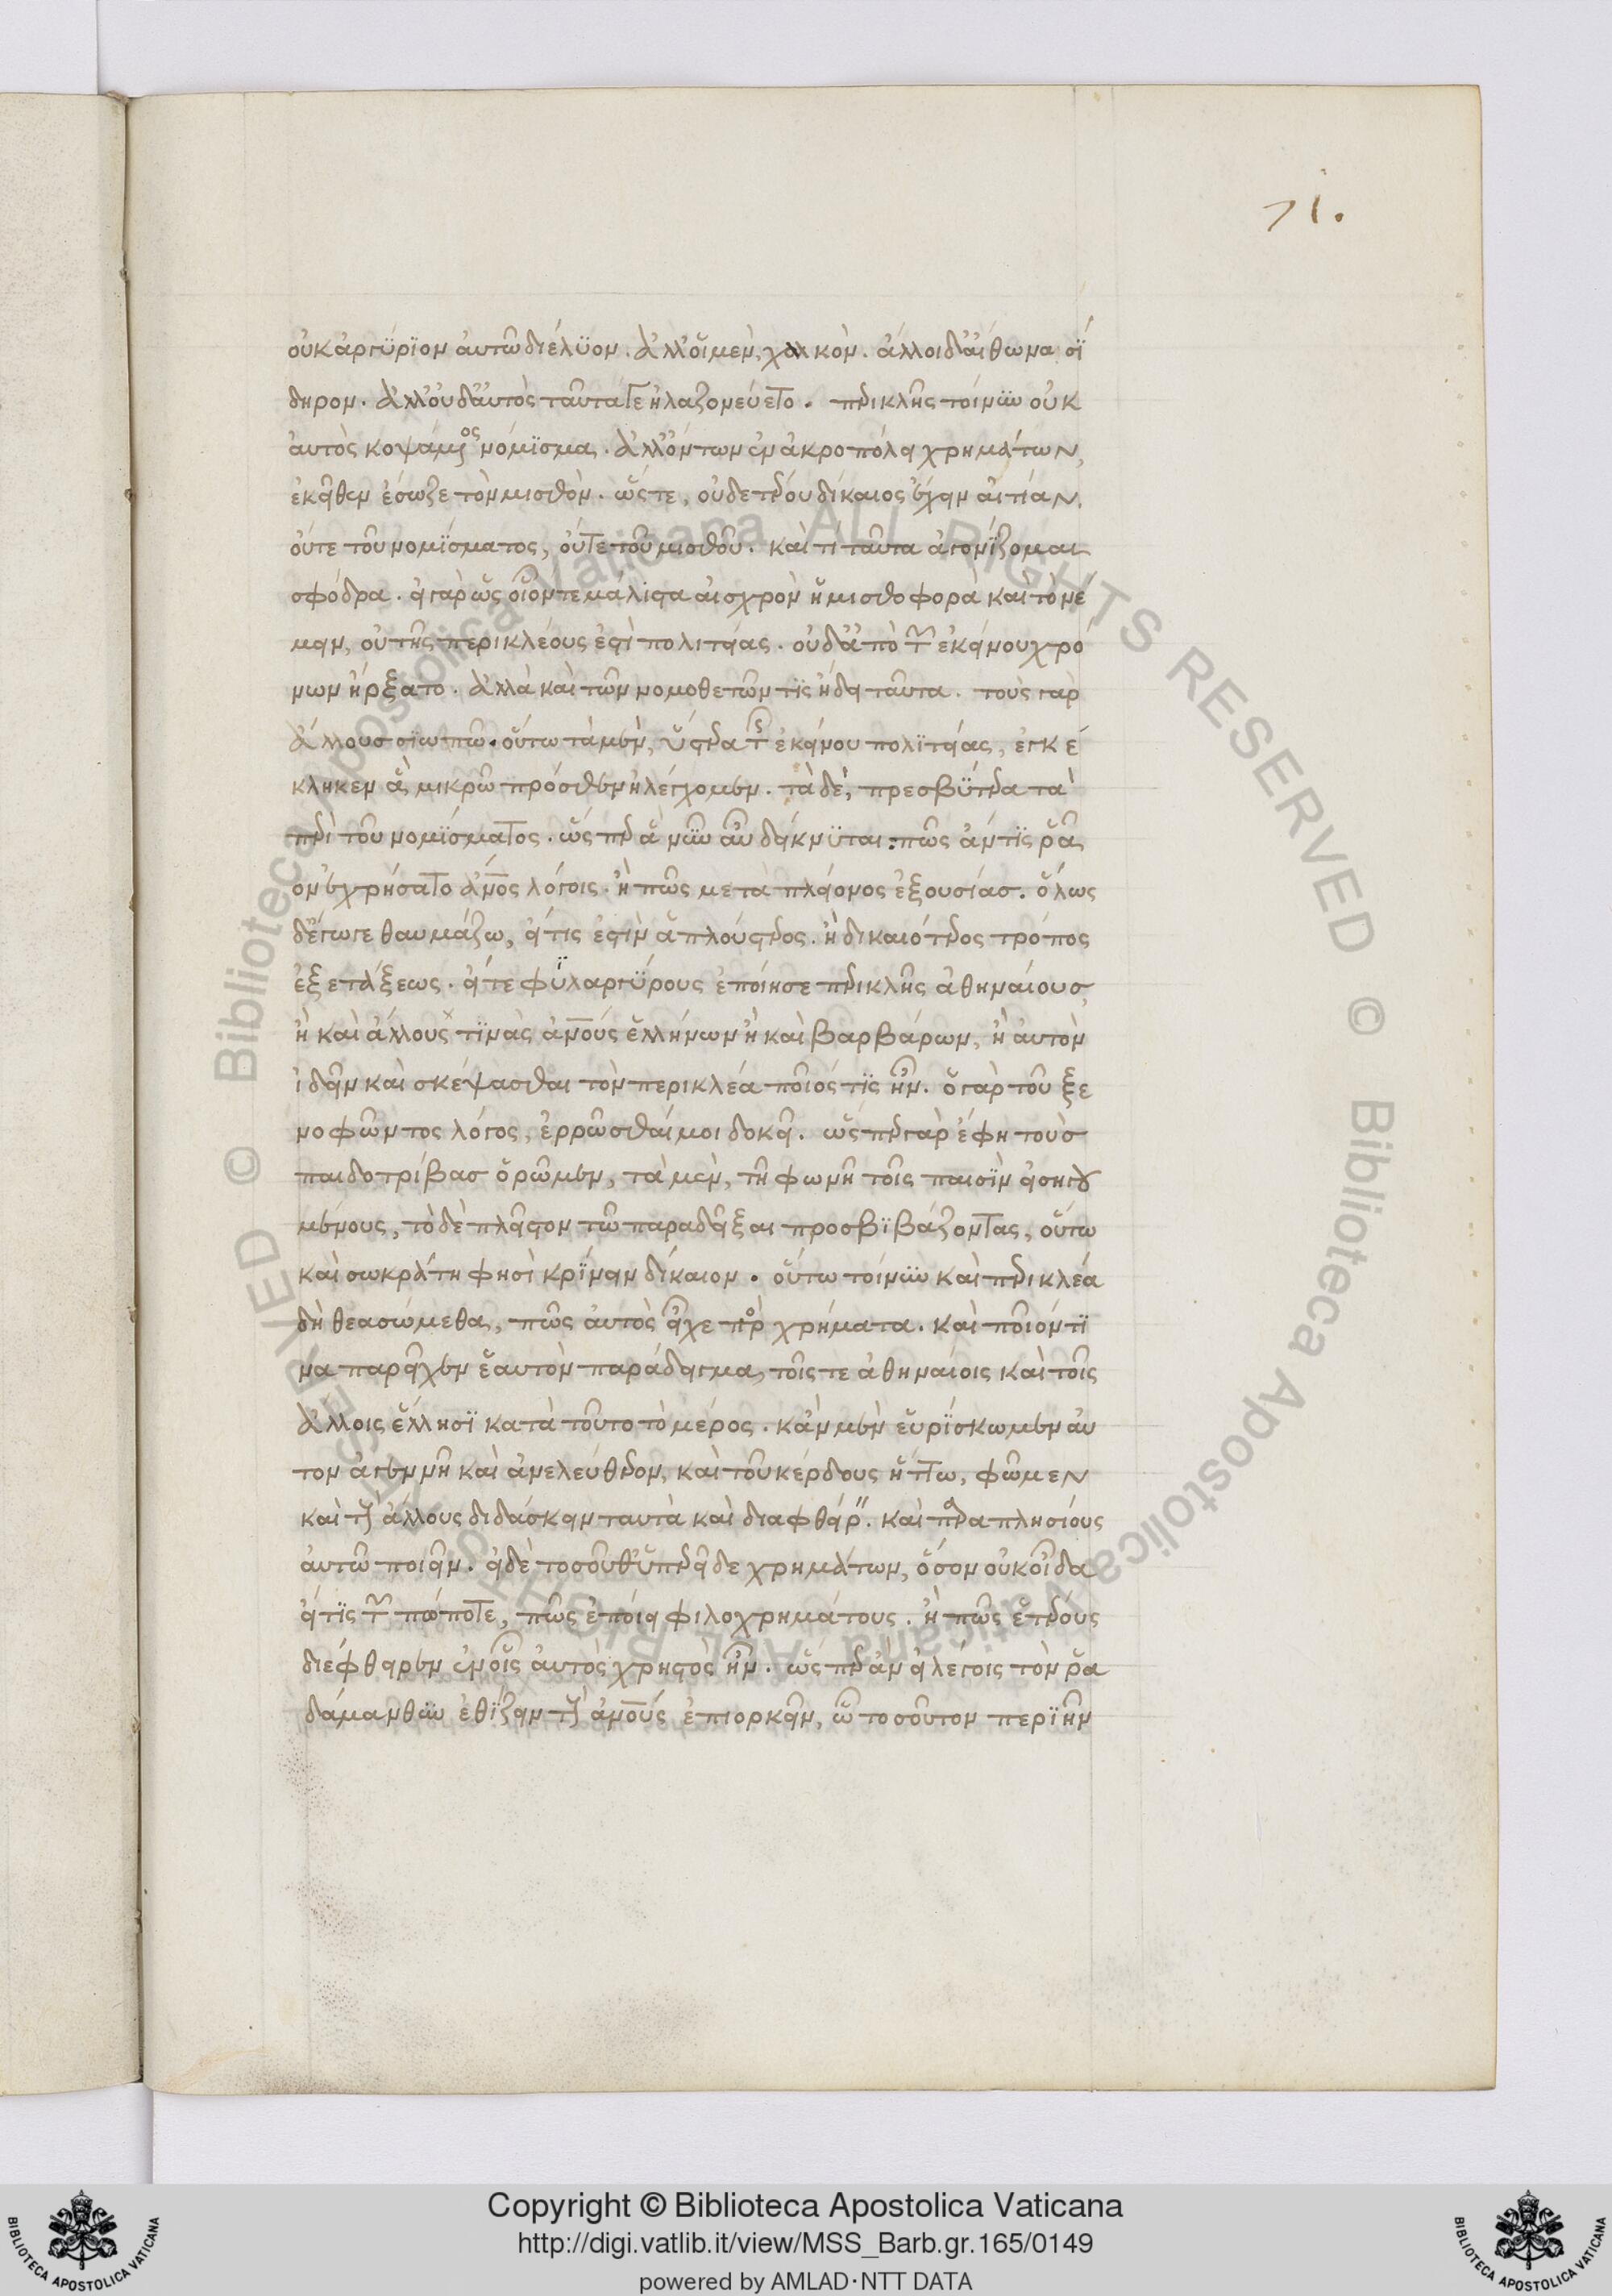 71.
οὐκ ἀργύριον ἀυτῶ διέλυον. ἀλλ' οἱ μὲν, χαλκὸν. ἄλλοι δ' αἴθωνα σί
δηρον. ἀλλ' οὐδ' ἀυτὸς ταῦτά γε ἠλαζονεύετο. περικλῆς τοίνυν οὐκ
ἀυτὸς κοψάμενος νόμισμα. ἀλλ' ὄντων ἐν ἀκροπόλει χρημάτων,
ἐκεῖθεν ἔσωζε τὸν μισθὸν. ὥστε, οὐδετέρου δίκαιος ἔχειν αἰτίαν.
οὔτε τοῦ νομίσματος, οὔτε τοῦ μισθοῦ. καὶ τί ταῦτα ἀγωνίζομαι
σφόδρα. εἰ γὰρ ὡς οἷόν τε μάλιστα αἰσχρὸν ἡ μισθοφορὰ καὶ τὸ νέ
μειν, οὐ τῆς περικλέους ἐστὶ πολιτείας. οὐδ' ἀπὸ τῶν ἐκείνου χρό
νων ἤρξατο. ἀλλὰ καὶ τῶν νομοθετῶν τὶς ἤδει ταῦτα. τοὺς γὰρ
ἄλλουσ σιωπῶ. οὕτω τὰ μὲν, ὕστερα τῆς ἐκείνου πολιτείας, ἐγκέ
κληκεν ἃ μικρῶ πρόσθεν ἠλέγχομεν. τὰ δὲ, πρεσβύτερα τὰ
περὶ τοῦ νομίσματος. ὥσπερ ἃ νῦν αὖ δείκνυται: πῶς ἄν τις ῥᾶ
ον ἐχρήσατο ἀνθρώποις λόγοις. ἢ πῶς μετὰ πλείονος ἐξουσίασ. ὅλως
δ' ἔγωγε θαυμάζω, εἴ τις ἐστὶν ἁπλούστερος. ἢ δικαιότερος τρόπος
ἐξετάξεως. εἴτε φυλαργύρους ἐποίησε περικλῆς ἀθηναίουσ,
ἢ καὶ ἄλλους τινὰς ἀνθρώπους ἑλλήνων ἢ καὶ βαρβάρων, ἢ ἀυτὸν
ἰδεῖν καὶ σκέψασθαι τὸν περικλέα ποῖός τις ἦν. ὁ γὰρ τοῦ ξε
νοφῶντος λόγος, ἐρρῶσθαί μοι δοκεῖ. ὥσπερ γὰρ ἔφη τοὺσ
παιδοτρίβασ ὁρῶμεν, τὰ μὲν, τῇ φωνῇ τοῖς παισὶν εἰσηγου
μένους, τὸ δὲ πλεῖστον τῶ παραδεῖξαι προσβιβάζοντας, οὕτω
καὶ σωκράτη φησὶ κρίνειν δίκαιον. οὕτω τοίνυν καὶ περικλέα
δὴ θεασώμεθα, πῶς ἀυτὸς εἶχε πρὸς χρήματα. καὶ ποῖόν τι
να παρεῖχεν ἑαυτὸν παράδειγμα, τοῖς τε ἀθηναίοις καὶ τοῖς
ἄλλοις ἕλλησι κατὰ τοῦτο τὸ μέρος. κἂν μὲν εὑρίσκωμεν αὐ
τον ἀγεννῆ καὶ ἀνελεύθερον, καὶ τοῦ κέρδους ἥττω, φῶμεν
καὶ τοὺς ἄλλους διδάσκειν ταυτὰ καὶ διαφθείρειν. καὶ παραπλησίους
ἀυτῶ ποιεῖν. εἰ δὲ τοσοῦθ' ὑπερεῖδε χρημάτων, ὅσον οὐκ οἶδα
εἴ τις τῶν πώποτε, πῶς ἐποίει φιλοχρημάτους. ἢ πῶς ἑτέρους
διέφθειρεν ἐν οἷς ἀυτὸς χρηστὸς ἦν. ὥσπερ ἂν εἰ λέγοις τὸν ῥα
δάμανθυν ἐθίζειν τοὺς ἀνθρώπους ἐπιορκεῖν, ὧ τοσοῦτον περιῆν
© Biblioteca Apostolica Vaticana ALL RIGHTS RESERVED © Biblioteca Apostolica Vaticana ALL RIGHTS RESERVED
Copyright © Biblioteca Apostolica Vaticana
http://digi.vatlib.it/view/MSS_Barb.gr.165/0149
powered by AMLAD·NTT DATA
BIBLIOTECA APOSTOLICA VATICANA
BIBLIOTECA APOSTOLICA VATICANA